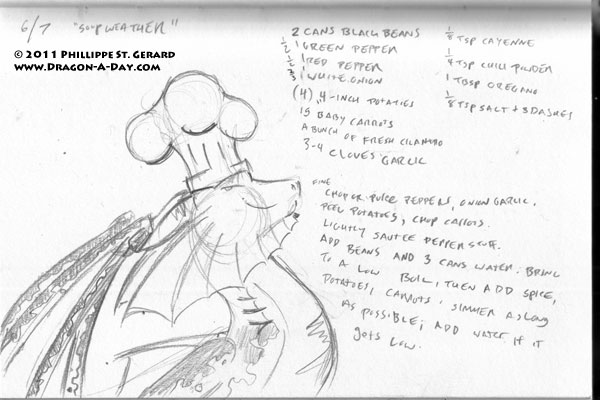 6/7 "SOUP WEATHER"
© 2011 PHILLIPPE ST. GERARD
WWW.DRAGON-A-DAY.COM
2 CANS BLACK BEANS
1/2 1 GREEN PEPPER
1/2 1 RED PEPPER
1 WHITE ONION
(4) 4-INCH POTATOES
15 BABY CARROTS
A BUNCH OF FRESH CILANTRO
3-4 CLOVES GARLIC
1/8 TSP CAYENNE
1/4 TSP CHILI POWDER
1 TBSP OREGANO
1/8 TSP SALT + 3 DASHES
FINE
CHOP OR PUREE PEPPERS, ONION GARLIC.
PEEL POTATOES, CHOP CARROTS.
LIGHTLY SAUTEE PEPPER STUFF.
ADD BEANS AND 3 CANS WATER. BRING
TO A LOW BOIL, THEN ADD SPICE,
POTATOES, CARROTS, SIMMER AS LONG
AS POSSIBLE; ADD WATER IF IT
GETS LOW.